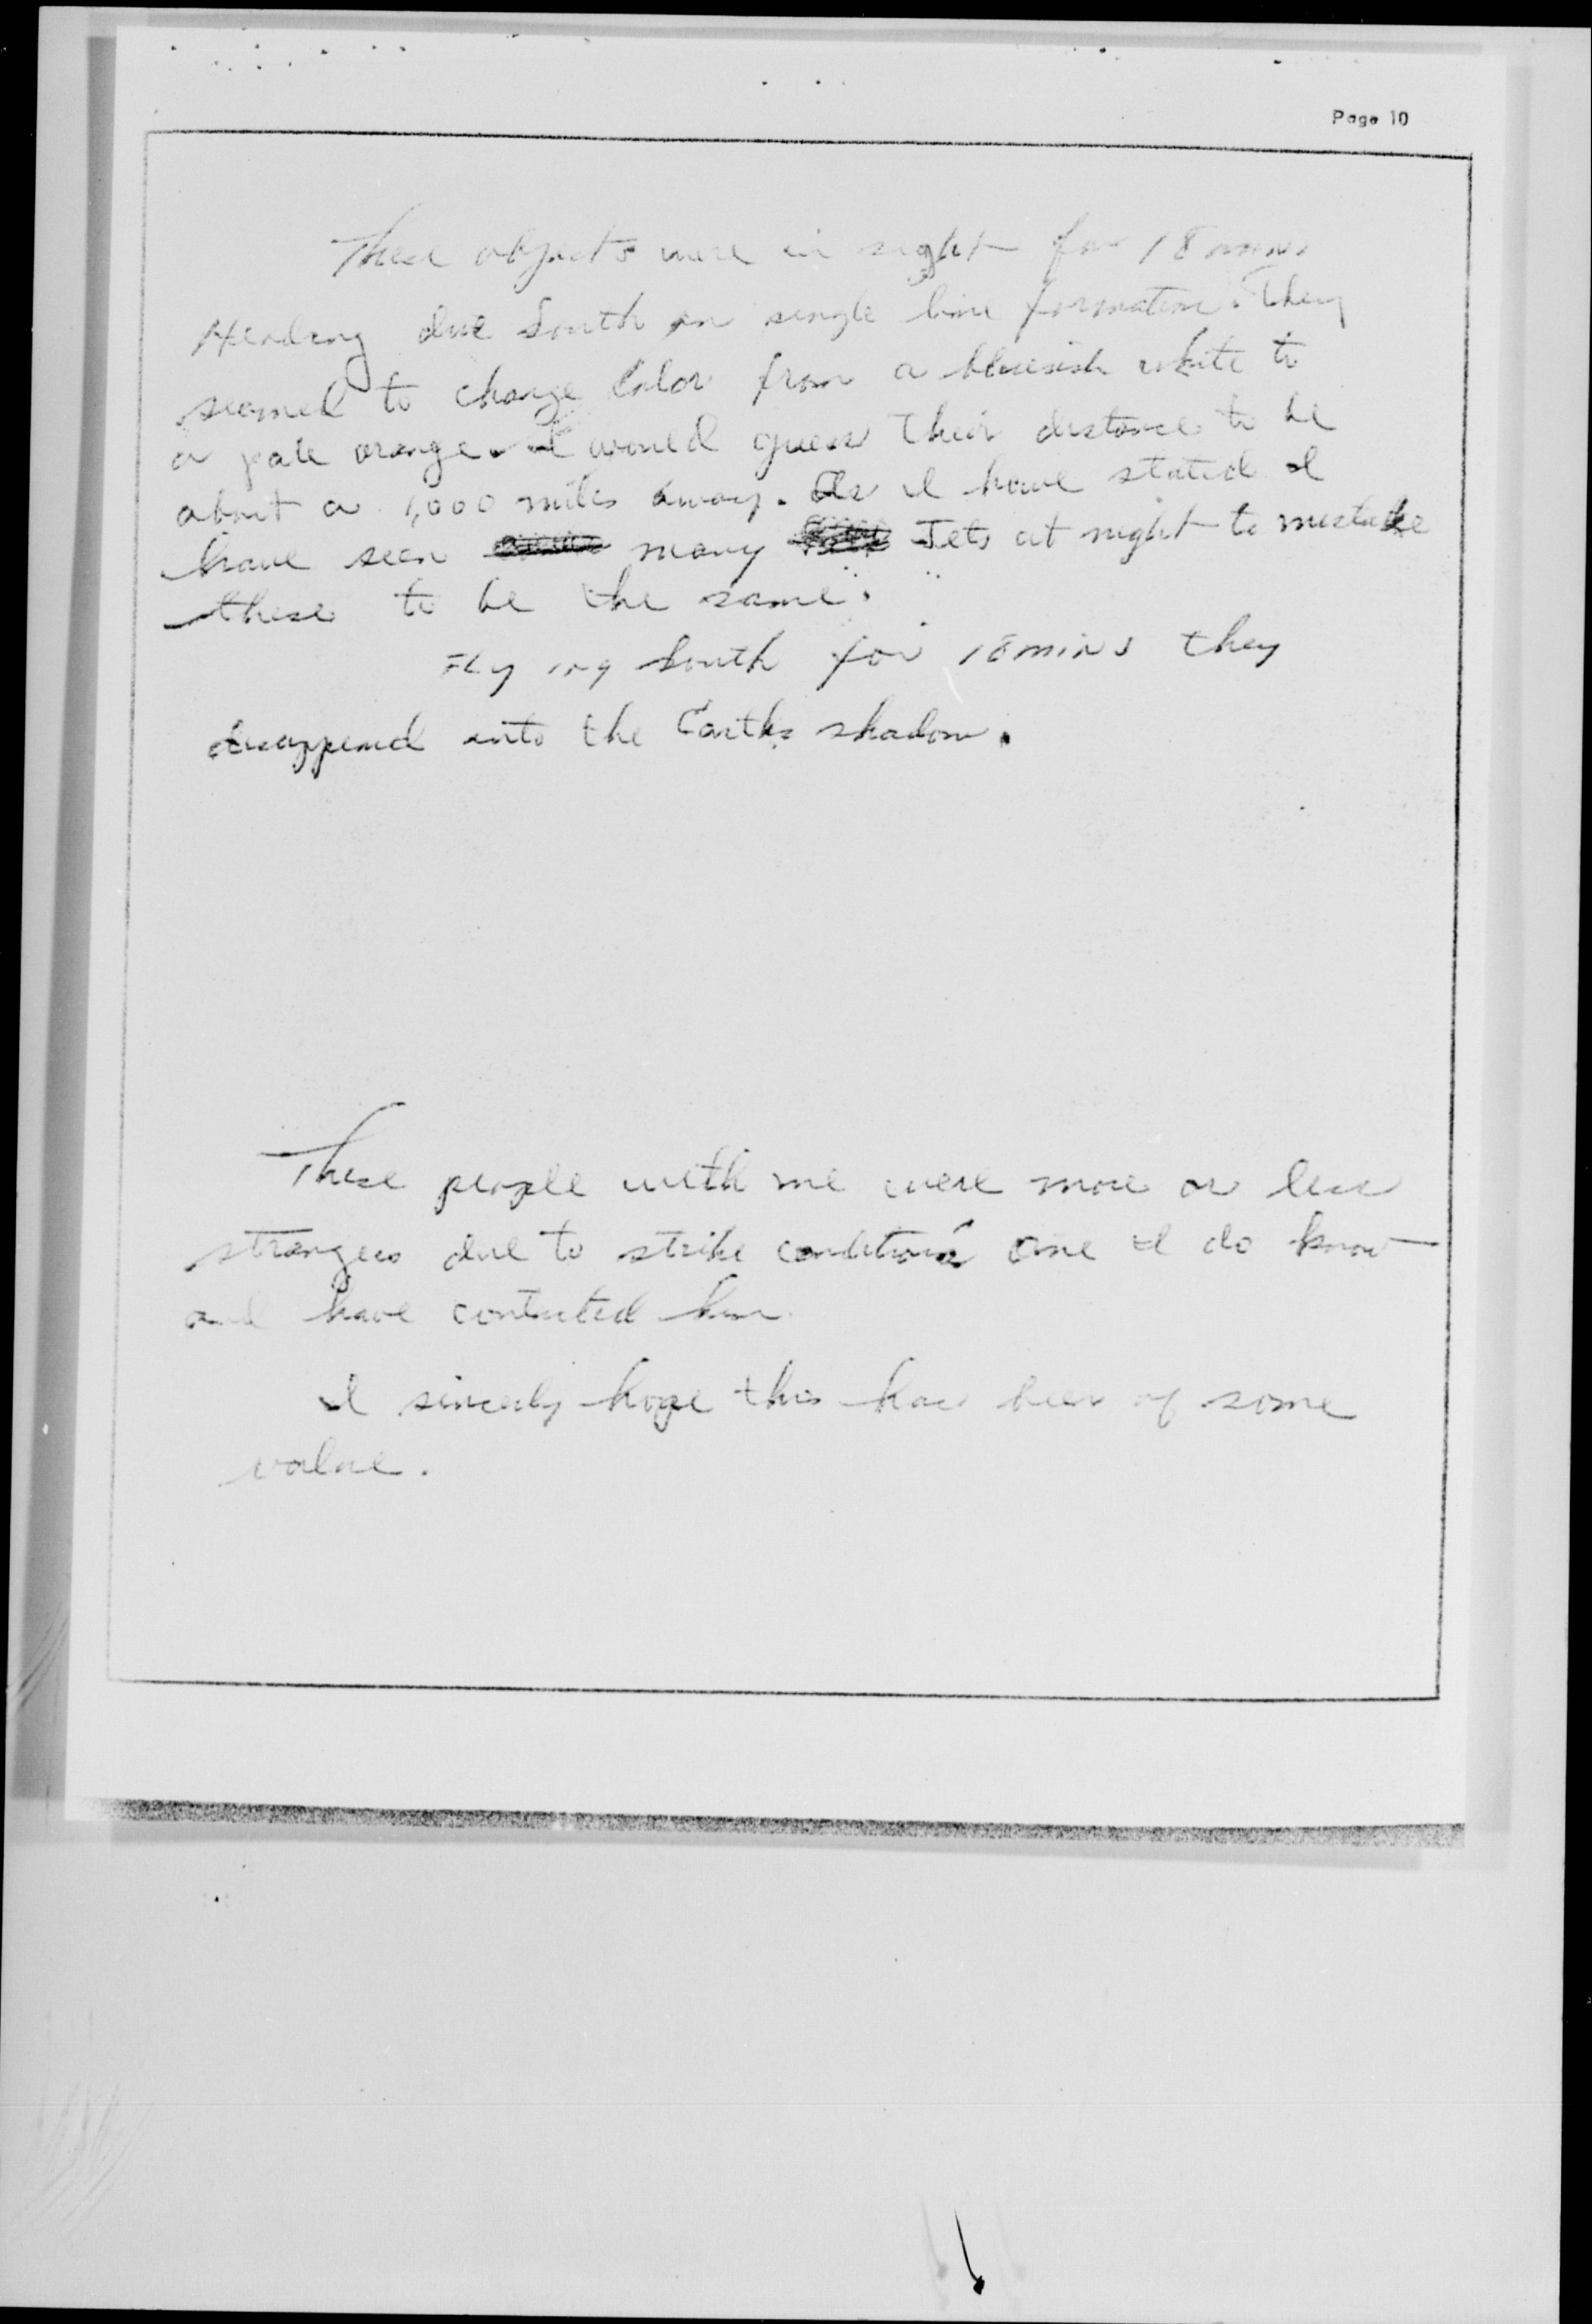 Page 10
These objects were in sight for 18 mins
Heading due South in single line formation. They
seamed to change Color from a blueish white to
a pale orange. I would guess their distance to be
about a 1,000 miles away. As I have stated I
have seen many Jets at night to mistake
these to be the same.
Flying South for 18 mins they
disappeard into the Earths shadow.
These people with me were more or less
strangers due to strike conditions one I do know
and have contacted him
I sincerly hope this has been of some
value.